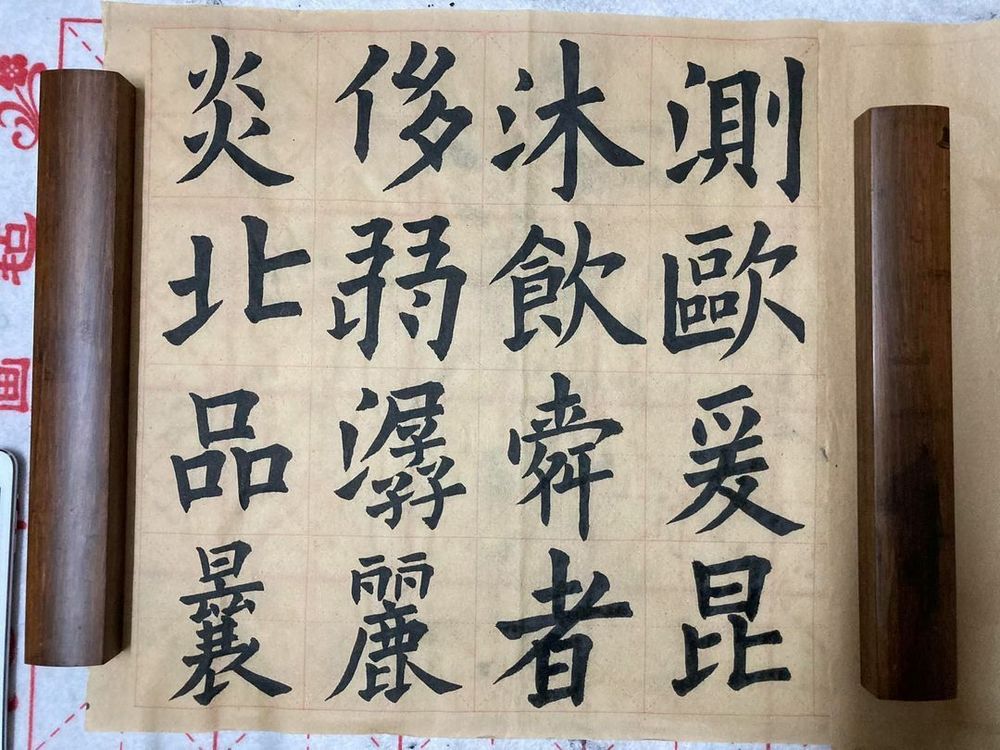 測歐爰昆
沐飲舜者
侈弱潺麗
炎北品曩